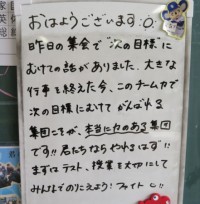 おはようございます
昨日の集会で"次の目標"に
むけての話がありました。大きな
行事を終えた今、このチーム力で
次の目標にむけて がんばれる
集団こそが、本当に力のある集団
です!! 君たちなら やれるはず!!
まずはテスト、授業を大切にして
みんなでのりこえよう! ファイト